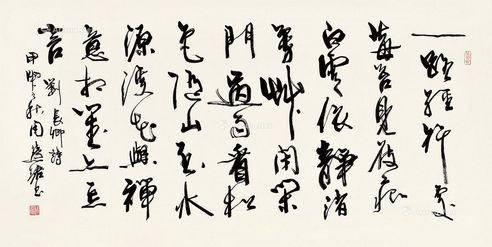 一路經行處
莓苔見屐痕
白雲依靜渚
芳草閉閑
門過雨看松
色隨山到水
源溪花與禪
意相對亦忘
言
劉長卿詩
之秋周慧珺書